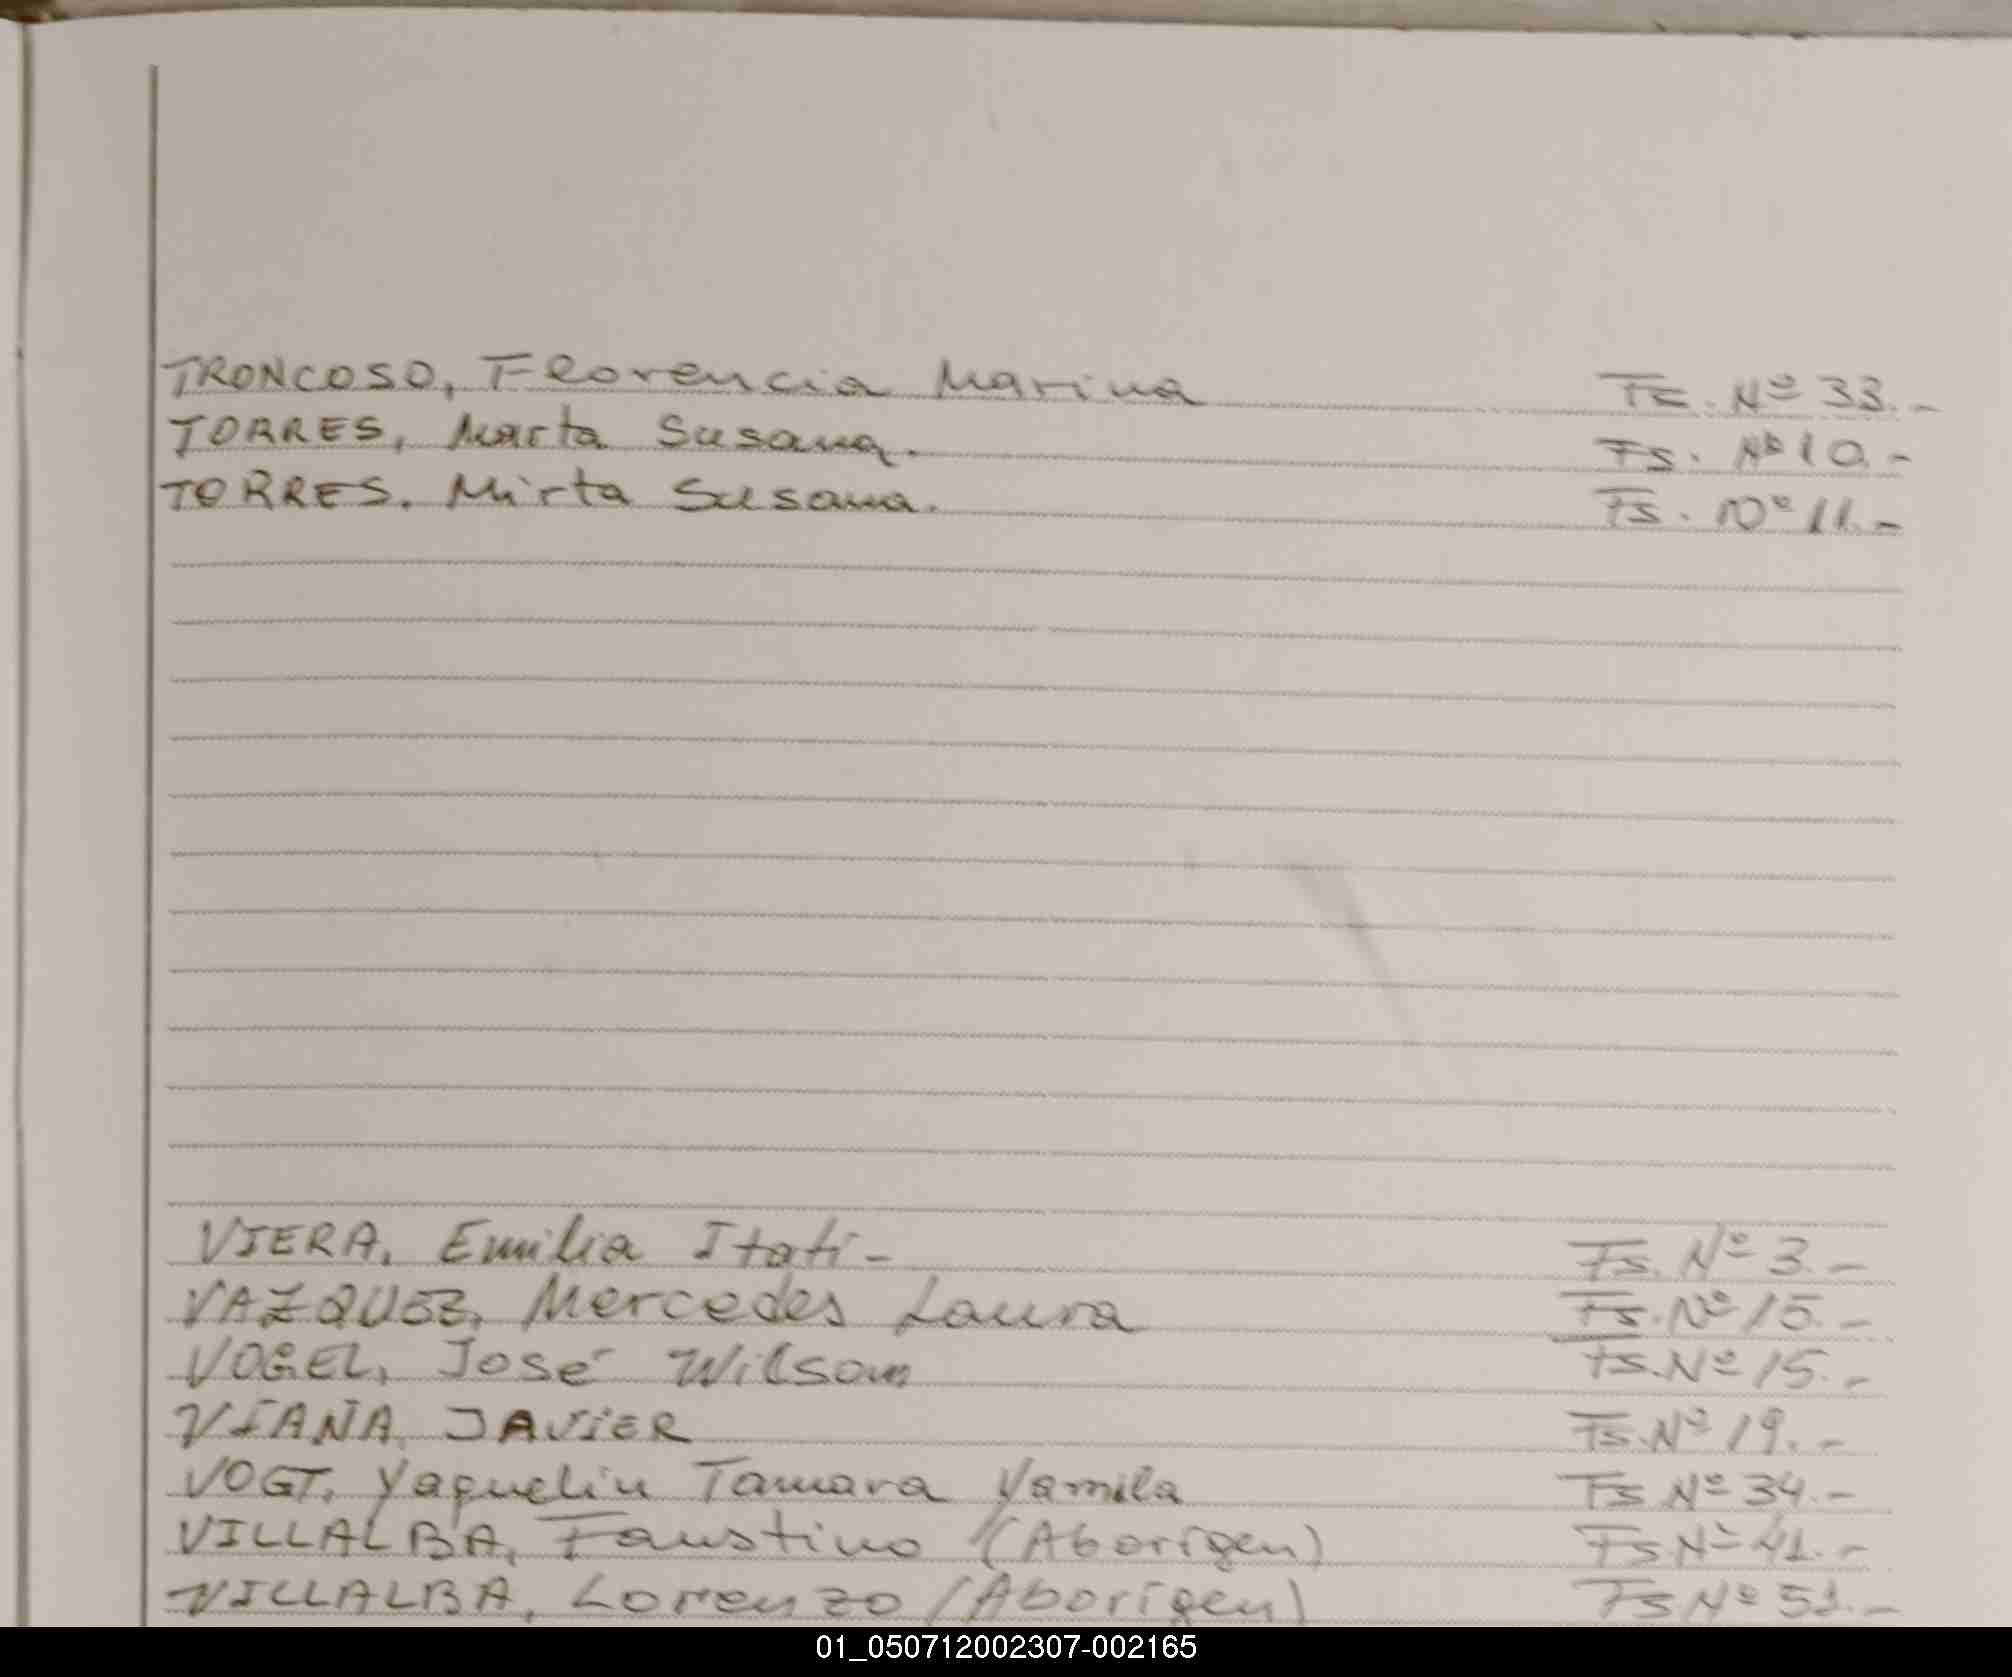 TRONCOSO, Florencia Marina Fs. Nº 33.-
TORRES, Marta Susana. Fs. Nº 10.-
TORRES. Mirta Susana. Fs. Nº 11.-
VIERA, Emilia Itatí- Fs. Nº 3.-
VAZQUEZ, Mercedes Laura Fs. Nº 15.-
VOGEL, José Wilson Fs. Nº 15.-
VIANA, JAVIER Fs. Nº 19.-
VOGT, Yaquelin Tamara Yamila Fs Nº 34.-
VILLALBA, Faustino (Aborigen) Fs Nº 41.-
VILLALBA, Lorenzo (Aborígen) Fs Nº 51.-
01_050712002307-002165